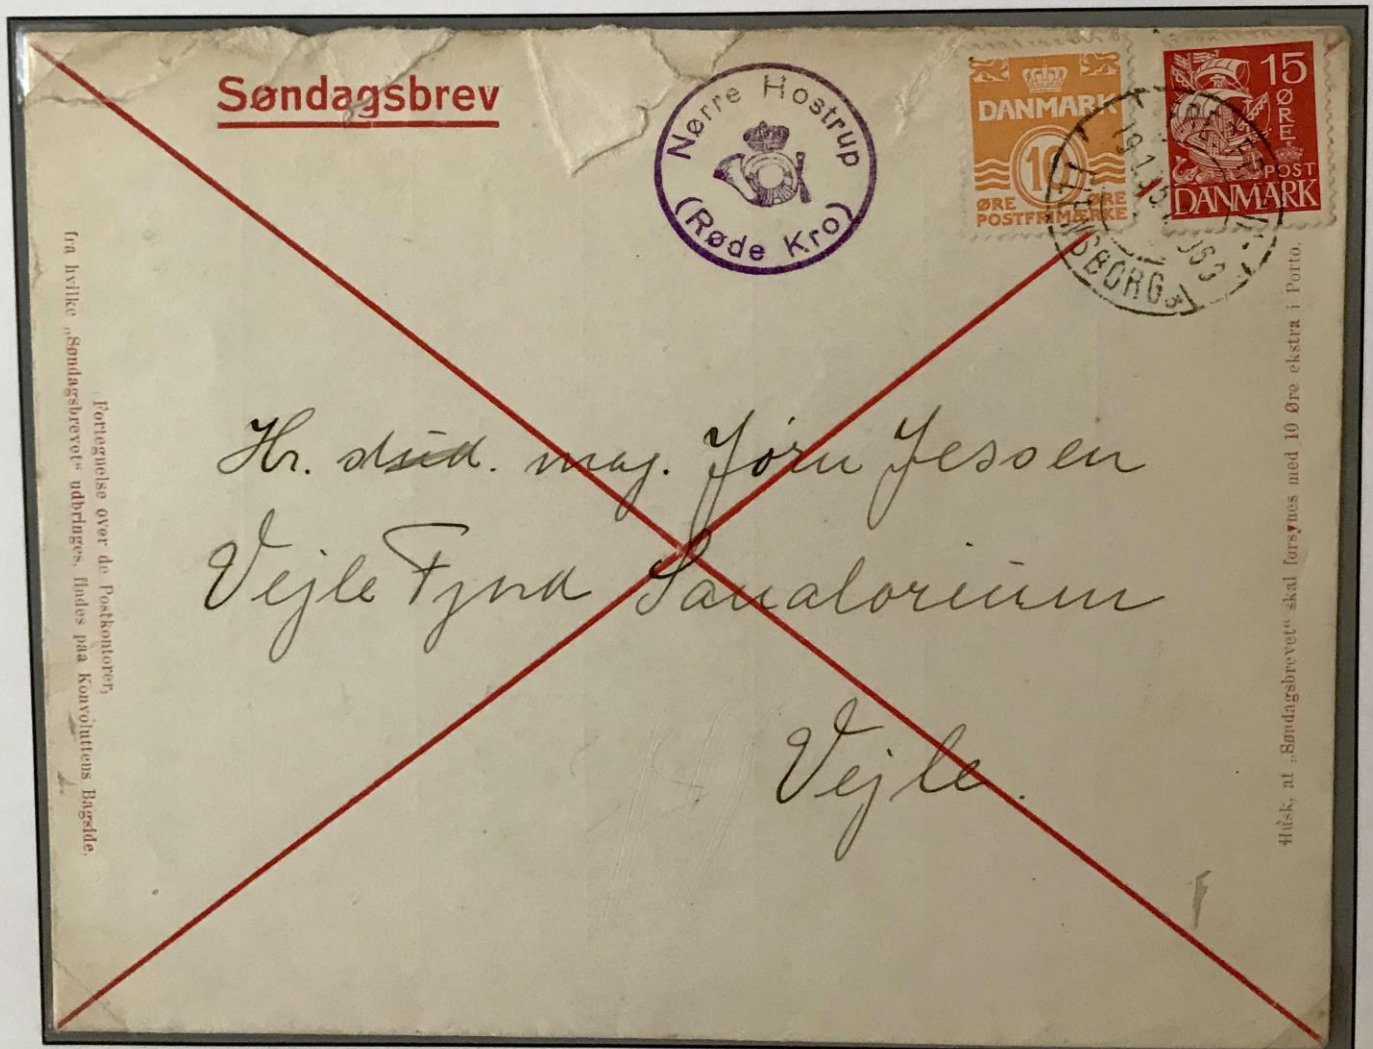 Søndagsbrev
Nørre Hostrup
(Røde Kro)
DANMARK
10
ØRE ØRE
POSTFRIMÆRKE
15
ØRE
POST
DANMARK
Hr. stud. mag. Jørn Jessen
Vejle Fjord Sanatorium
Vejle.
Fortegnelse over de Postkontorer,
fra hvilke „Søndagsbrevet“ udbringes, findes paa Konvoluttens Bagside.
Husk, at „Søndagsbrevet“ skal forsynes med 10 Øre ekstra i Porto.